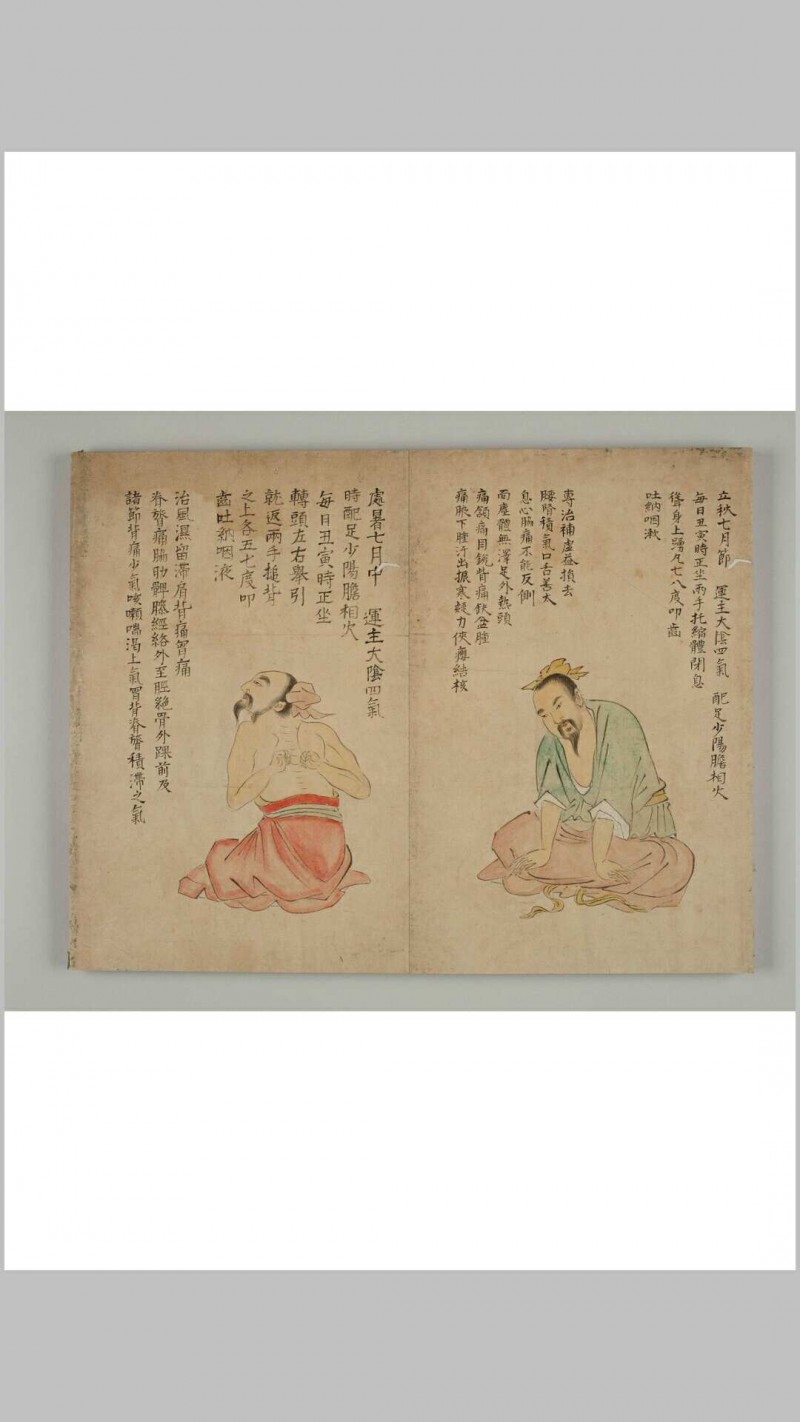 立秋七月節　運主大陰四氣　配足少陽膽相火
每日丑寅時正坐兩手托縮體閉息
聳身上踴凡七八度叩齒
吐納咽漱
專治補虛益損去
腰腎積氣口舌善太
息心脇痛不能反側
面塵體無澤足外熱頭
痛頷痛目銳眥痛缺盆腫
痛腋下腫汗出振寒
處暑七月中　運主大陰四氣
時配足少陽膽相火
每日丑寅時正坐
轉頭左右舉引
就返兩手搥背
之上各五七度叩
齒吐納咽液
治風濕留滯肩背痛胷痛
脊膂痛脇肋髀膝經絡外至脛絕骨外踝前及
諸節皆痛少氣咳嗽喘渴上氣胷背脊膂積滯之氣